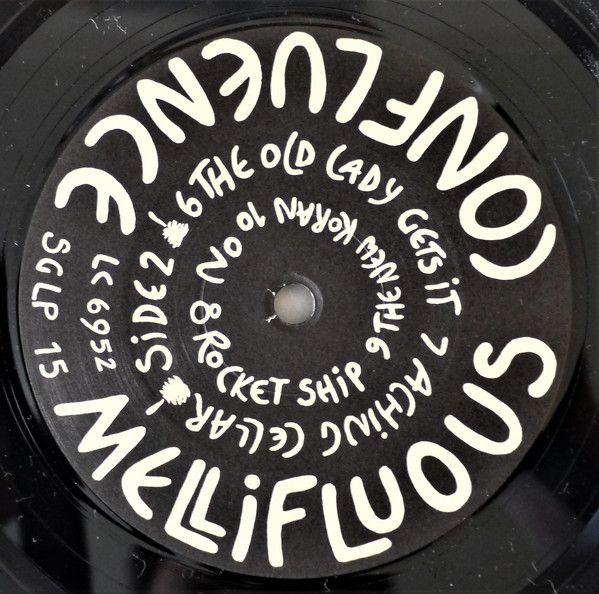 MELLIFLUOUS
CONFLUENCE
SIDE 2
6 THE OLD LADY GETS IT
7 ACHING CELLAR
8 ROCKET SHIP
9 THE NEW KORAN
10 ON
LC 6952
SGLP 15